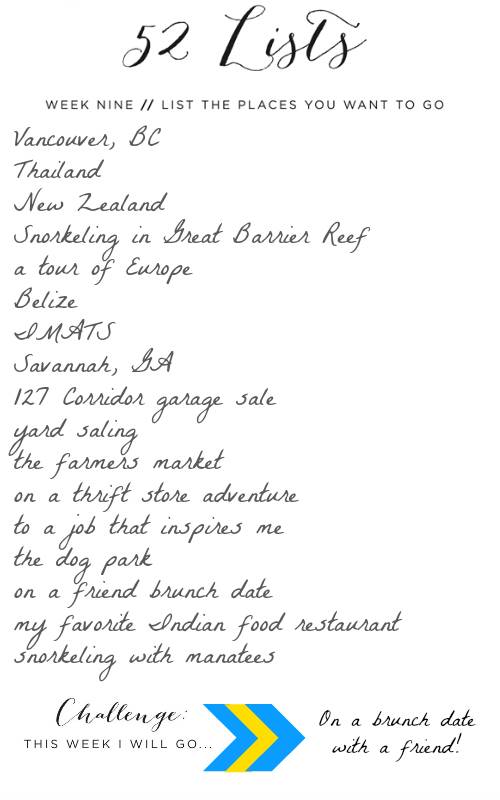 52 Lists
WEEK NINE // LIST THE PLACES YOU WANT TO GO
Vancouver, BC
Thailand
New Zealand
Snorkeling in Great Barrier Reef
a tour of Europe
Belize
IMATS
Savannah, GA
127 Corridor garage sale
yard saling
the farmers market
on a thrift store adventure
to a job that inspires me
the dog park
on a friend brunch date
my favorite Indian food restaurant
snorkeling with manatees
Challenge:
THIS WEEK I WILL GO...
On a brunch date
with a friend!